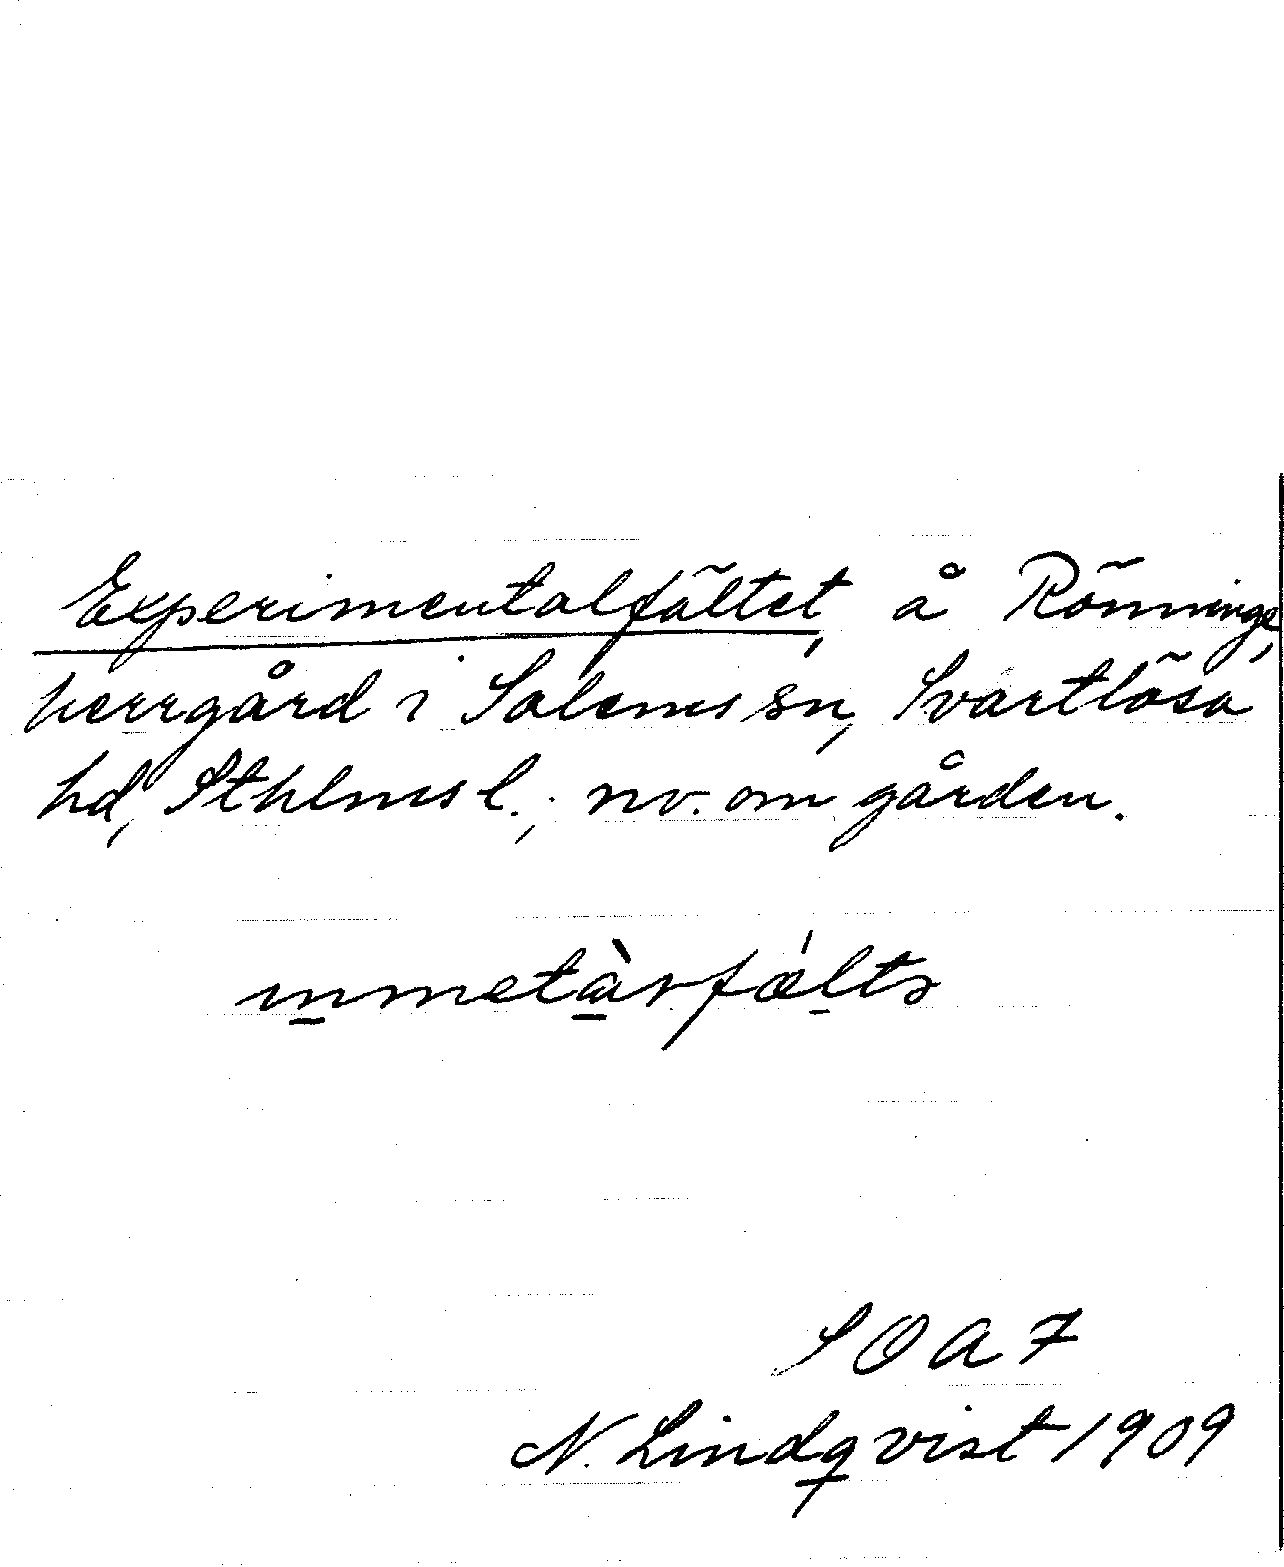 Experimentalfältet, å Rönninge,
herrgård i Salems sn, Svartlösa
hd, Sthlms l.; nv. om gården.
SOA 7
N. Lindqvist 1909